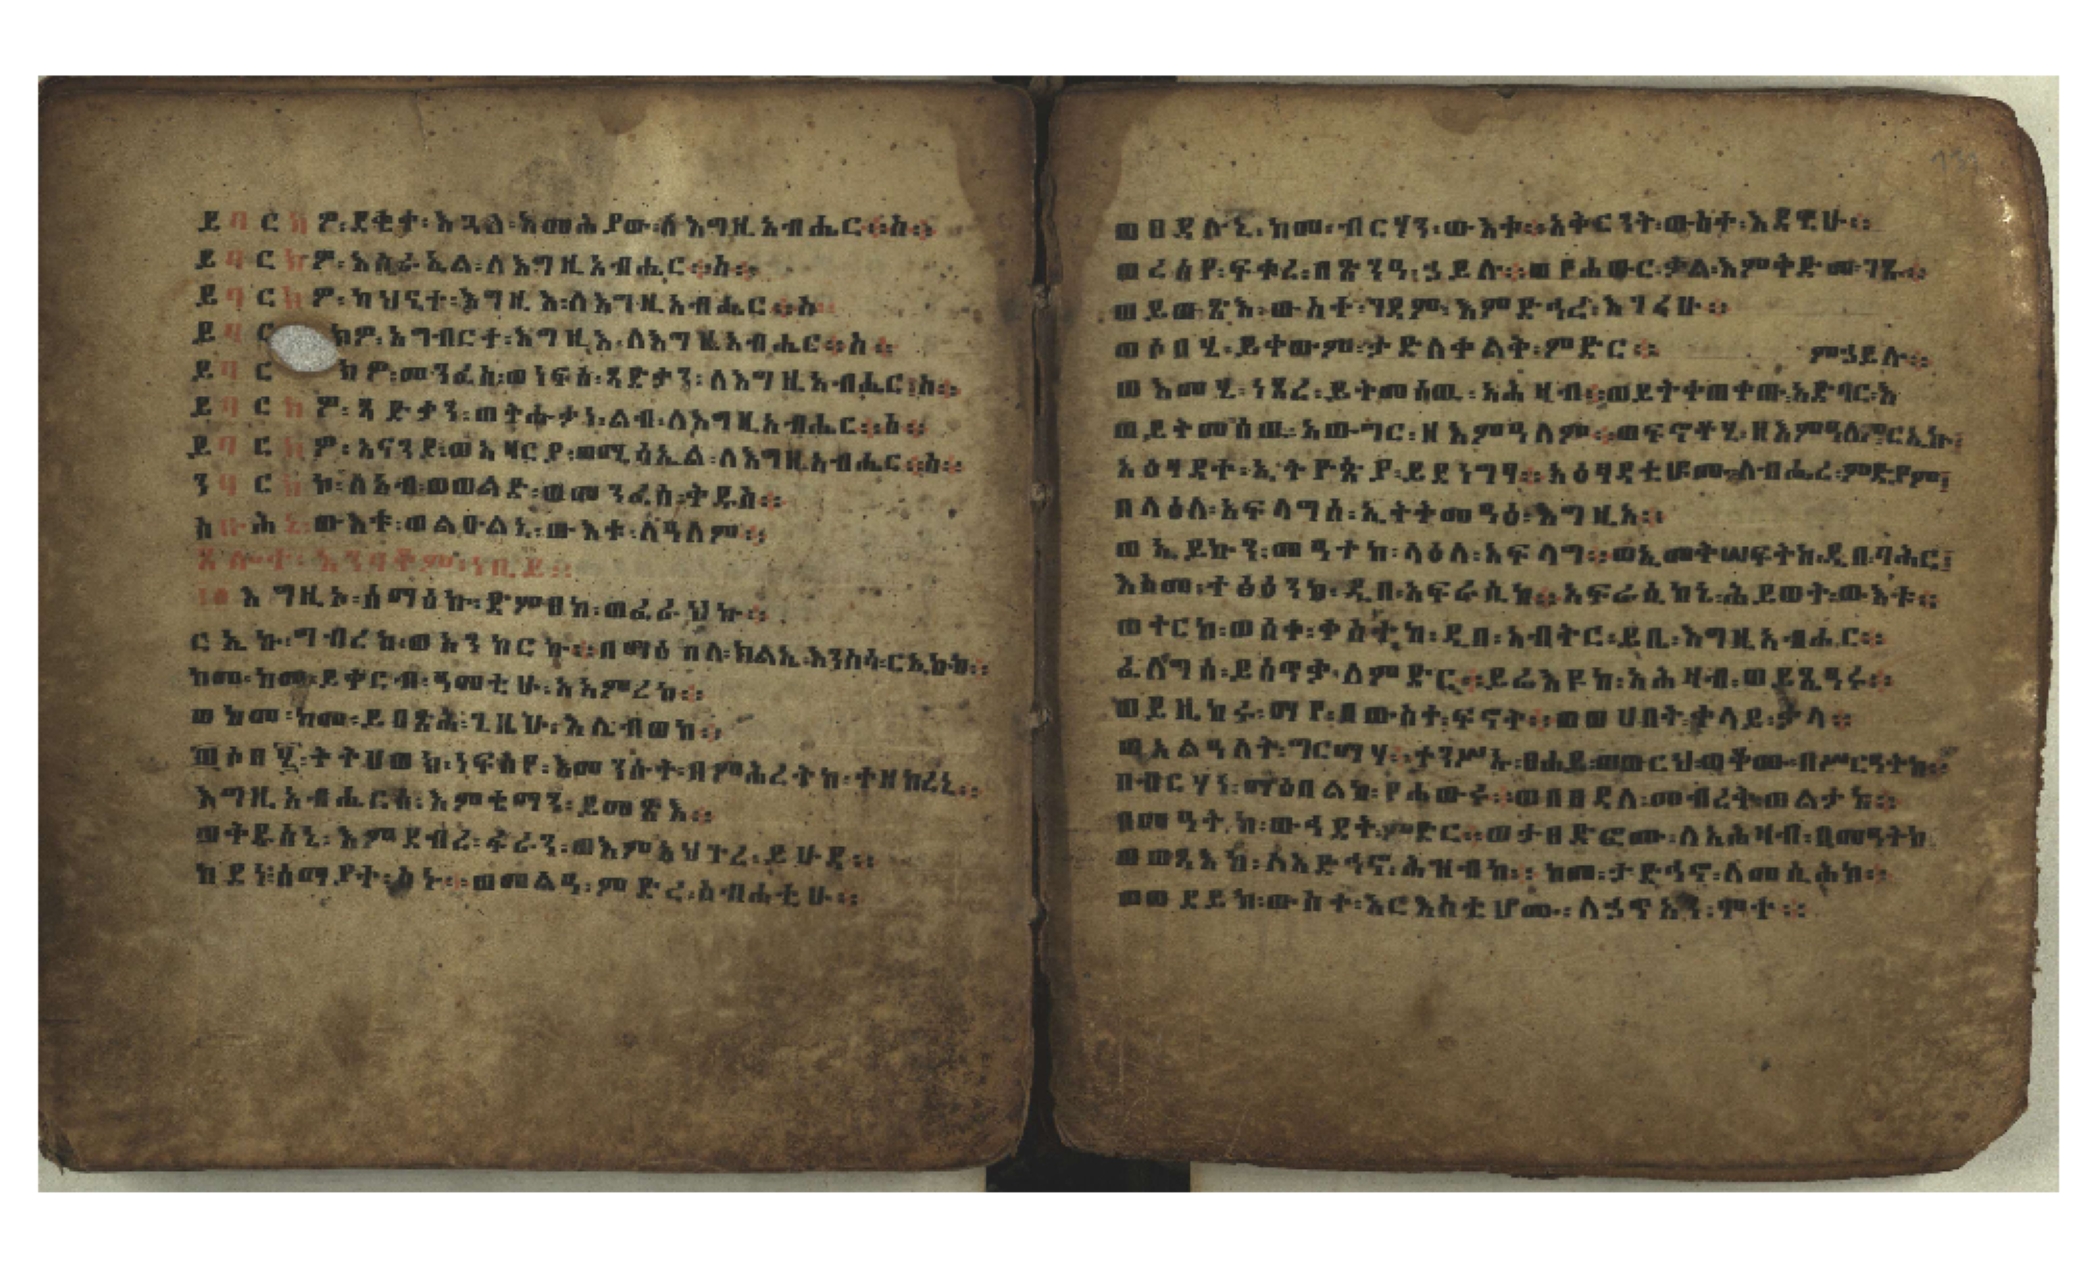 ይባርክዎ፡ደቂቀ፡እጓለ፡እመሕያው፡ለእግዚአብሔር፡፡ስ፡፡
ይባርክዎ፡እስራኤል፡ለእግዚአብሔር፡፡ስ፡፡
ይባርክዎ፡ካህናተ፡እግዚእ፡ለእግዚአብሔር፡፡ስ
ይባርክዎ፡አግብርተ፡እግዚእ፡ለእግዚአብሔር፡፡ስ፡፡
ይባርክዎ፡መንፈስ፡ወነፍሰ፡ጻድቃን፡ለእግዚአብሔር፡ስ፡፡
ይባርክዎ፡ጻድቃን፡ወትሑታነ፡ልብ፡ለእግዚአብሔር፡፡ስ፡፡
ይባርክዎ፡አናንያ፡ወአዛርያ፡ወሚሳኤል፡ለእግዚአብሔር፡፡ስ፡፡
ንባርኮ፡ለአብ፡ወወልድ፡ወመንፈስ፡ቅዱስ፡፡
ውእቱ፡ወልዑልኒ፡ውእቱ፡ለዓለም፡፡
ጸሎተ፡እንባቆም፡ነቢይ፡፡
እግዚኦ፡ሰማዕኩ፡ድምፀከ፡ወፈራህኩ፡፡
ርኢኩ፡ግብረከ፡ወአንከርኩ፡፡በማዕከለ፡ክልኤ፡እንስሳ፡ርኢኩከ፡፡
ከመ፡ከመ፡ይቀርብ፡ዓመቲሁ፡አአምረከ፡፡
ወከመ፡ከመ፡ይበጽሕ፡ጊዜሁ፡እሴብወከ፡፡
ወሶበሂ፡ትትሀወክ፡ነፍስየ፡እመንሱት፡በምሕረትከ፡ተዘከረኒ፡፡
እግዚአብሔርሰ፡እምቴማን፡ይመጽእ፡፡
ወቅዱስኒ፡እምደብረ፡ፋራን፡ወእምአህጉረ፡ይሁዳ፡፡
ከደነ፡ሰማያተ፡ስኑ፡፡ወመልዓ፡ምድረ፡ስብሐቲሁ፡፡
ወፀዳሉኒ፡ከመ፡ብርሃን፡ውእቱ፡፡አቅርንት፡ውስተ፡እደዊሁ፡፡
ወረሰየ፡ፍቁረ፡በጽንዓ፡ኃይሉ፡፡ወየሐውር፡ቃል፡እምቅድመ፡ገጹ፡፡
ወይወጽእ፡ውስተ፡ገዳም፡እምድኅረ፡እገሪሁ፡፡
ወሶበሂ፡ይቀውም፡ታድለቀልቅ፡ምድር፡፡
ምኃይሉ፡፡
ወእመሂ፡ነጸረ፡ይትመሰዉ፡አሕዛብ፡፡ወይትቀጠቀጡ፡አድባር፡እ
ወይትመሰዉ፡አውግር፡ዘእምዓለም፡፡ወፍኖቶሂ፡ዘእምዓለም፡ርኢኩ፡
አዕፃዳተ፡ኢትዮጵያ፡ይደነግፃ፡፡አዕፃዳቲሆሙ፡ለብሔረ፡ምድያም፡
በላዕለ፡አፍላግሰ፡ኢትትመዓዕ፡እግዚኦ፡፡
ወኢይኩን፡መዓትከ፡ላዕለ፡አፍላግ፡፡ወኢመቅሠፍትከ፡ዲበ፡ባሕር፡
እስመ፡ተፅዕንከ፡ዲበ፡አፍራሲከ፡፡አፍራሲከኒ፡ሕይወት፡ውእቱ፡፡
ወተርከ፡ወሰቀ፡ቀስትከ፡ዲበ፡አብትር፡ይቤ፡እግዚአብሔር፡፡
ፈለግሰ፡ይሰጥቃ፡ለምድር፡፡ይሬእዩከ፡አሕዛብ፡ወይጼዓሩ፡፡
ወይዜከሩ፡ማየ፡ዘውስተ፡ፍኖት፡፡ወወሀበት፡ቀላይ፡ቃላ፡፡
ወአልዓለት፡ግርማሃ፡፡ተንሥአ፡ፀሐይ፡ወወርህ፡ወቆመ፡በሥርዓትከ፡፡
በብርሃነ፡ማዕበልከ፡የሐውሩ፡፡ወበፀዳለ፡መብረቅ፡ወልታከ፡፡
በመዓትከ፡ውኅደት፡ምድር፡፡ወታፀድፎሙ፡ለአሕዛብ፡በመዓትከ
ወወጻእከ፡ለአድኅኖ፡ሕዝብከ፡፡ከመ፡ታድኅኖ፡ለመሲሕከ፡፡
ወወደይከ፡ውስተ፡አርእስቲሆሙ፡ለኃጥአን፡ሞተ፡፡